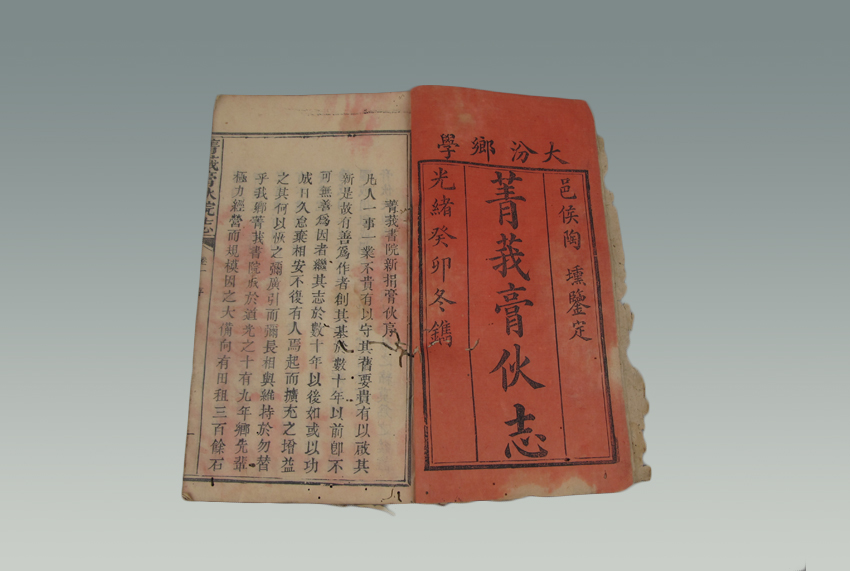 大汾鄉學
邑侯陶壎鑒定
菁莪膏伙志
光緒癸卯冬鐫
菁莪書院新捐膏伙序
凡人一事一業不貴有以守其舊要貴有以啟其
新是故有善爲作者創其基於數十年以前卽不
可無善爲因者繼其志於數十年以後如或以功
成日久怠棄相安不復有人焉起而擴充之增益
之其何以恢之彌廣引而彌長相與維持於勿替
乎我鄉菁莪書院成於道光之十有九年鄉先輩
極力經營而規模因之大備向有田租三百餘石
菁莪膏伙院志